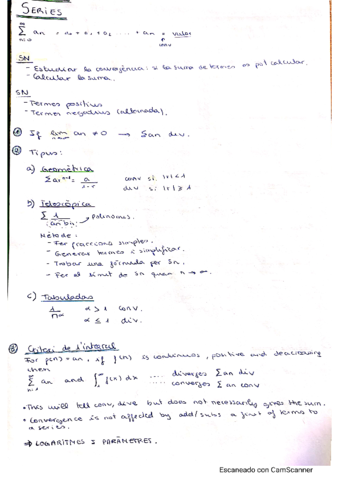 SERIES
∞ Σ n=0 an = a0 + a1 + a2 ... + an = valor
conv
SN
- Estudiar la convergència: si la suma de termes es pot calcular.
- Calcular la suma.
SN
- Termes positius
- Termes negatius (alternada).
① If lim n→∞ an ≠ 0 → San div.
② Tipus:
a) Geomètrica
Σ ar^n-1 = a/1-r conv si |r| < 1
div si |r| ≥ 1
b) Telescòpica
Σ 1/an·bn → Polinomis.
Mètode:
- Fer fraccions simples.
- Generar termes i simplificar.
- Trobar una fórmula per Sn.
- Fer el límit de Sn quan n → ∞.
c) Tabulades
1/n^α α > 1 conv.
α ≤ 1 div.
③ Criteri de l'integral
For f(n) = an, if f(n) is continuous, positive and decreasing
then
∞ Σ n=1 an and ∫ ∞ f(x) dx .... diverges Σ an div
.... converges Σ an conv
• This will tell conv, dive but does not necessarily gives the sum.
• Convergence is not affected by add/subs a finit of terms to
a series.
⇒ LOGARITMES I PARÀMETRES.
Escaneado con CamScanner